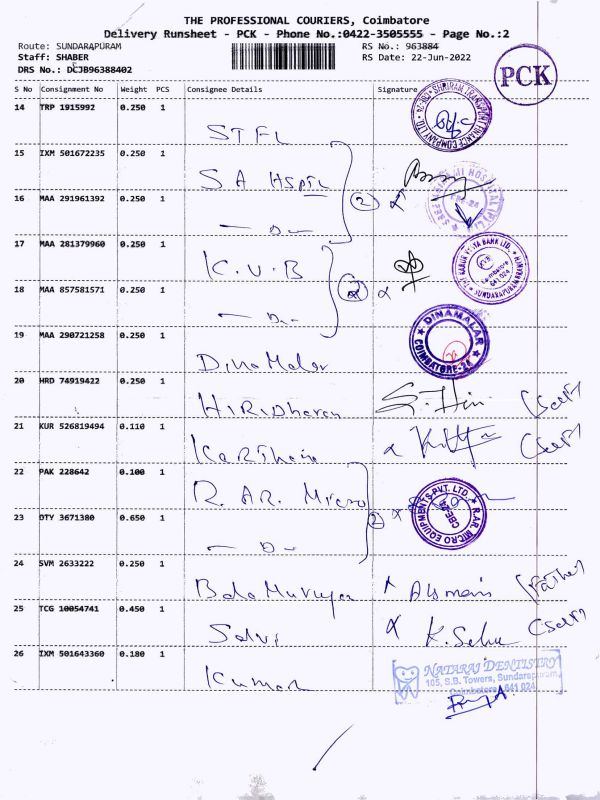 THE PROFESSIONAL COURIERS, Coimbatore
Delivery Runsheet - PCK - Phone No.:0422-3505555 - Page No.:2
Route: SUNDARAPURAM RS No.: 963884
Staff: SHABER RS Date: 22-Jun-2022
DRS No.: DCJB96388402
PCK
S No Consignment No Weight PCS Consignee Details Signature
14 TRP 1915992 0.250 1
STFL
15 IXM 501672235 0.250 1
S A HSPTL
16 MAA 291961392 0.250 1
— D —
2
17 MAA 281379960 0.250 1
K.V.B
THE KARUR VYSYA BANK LTD.
SUNDARAPURAM
Coimbatore
641 024
18 MAA 857581571 0.250 1
— D —
2
19 MAA 290721258 0.250 1
DinaMalar
DINAMALAR
COIMBATORE-24
20 HRD 74919422 0.250 1
HIRIDharan
(Self)
21 KUR 526819494 0.110 1
Karthein
(Self)
22 PAK 228642 0.100 1
R. AR. Micro
R.AR. MICRO EQUIPMENTS PVT. LTD.
CBE-24
23 DTY 3671380 0.650 1
— D —
2
24 SVM 2633222 0.250 1
BalaMuruga
(Father)
25 TCG 10054741 0.450 1
Selvi
K. Selvi (Self)
26 IXM 501643360 0.180 1
Kumar
NATARAJ DENTISTRY
105, S.B. Towers, Sundarapuram,
Coimbatore - 641 024